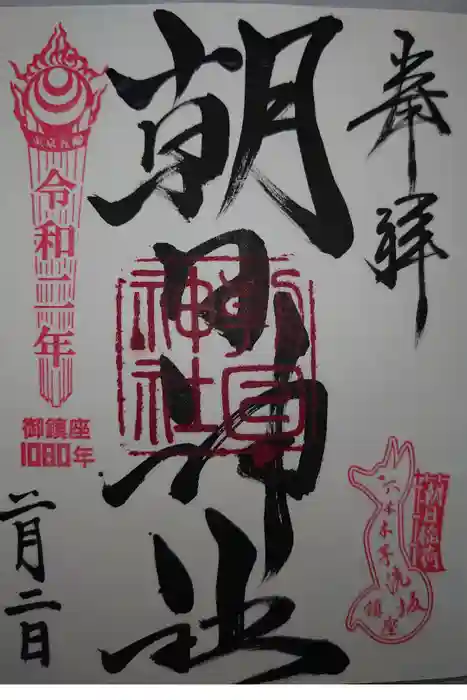 奉拝
朝日神社
朝日神社
朝日稲荷
六本木芋洗坂
鎮座
東京五輪
令和二年
御鎮座
1080年
二月二日